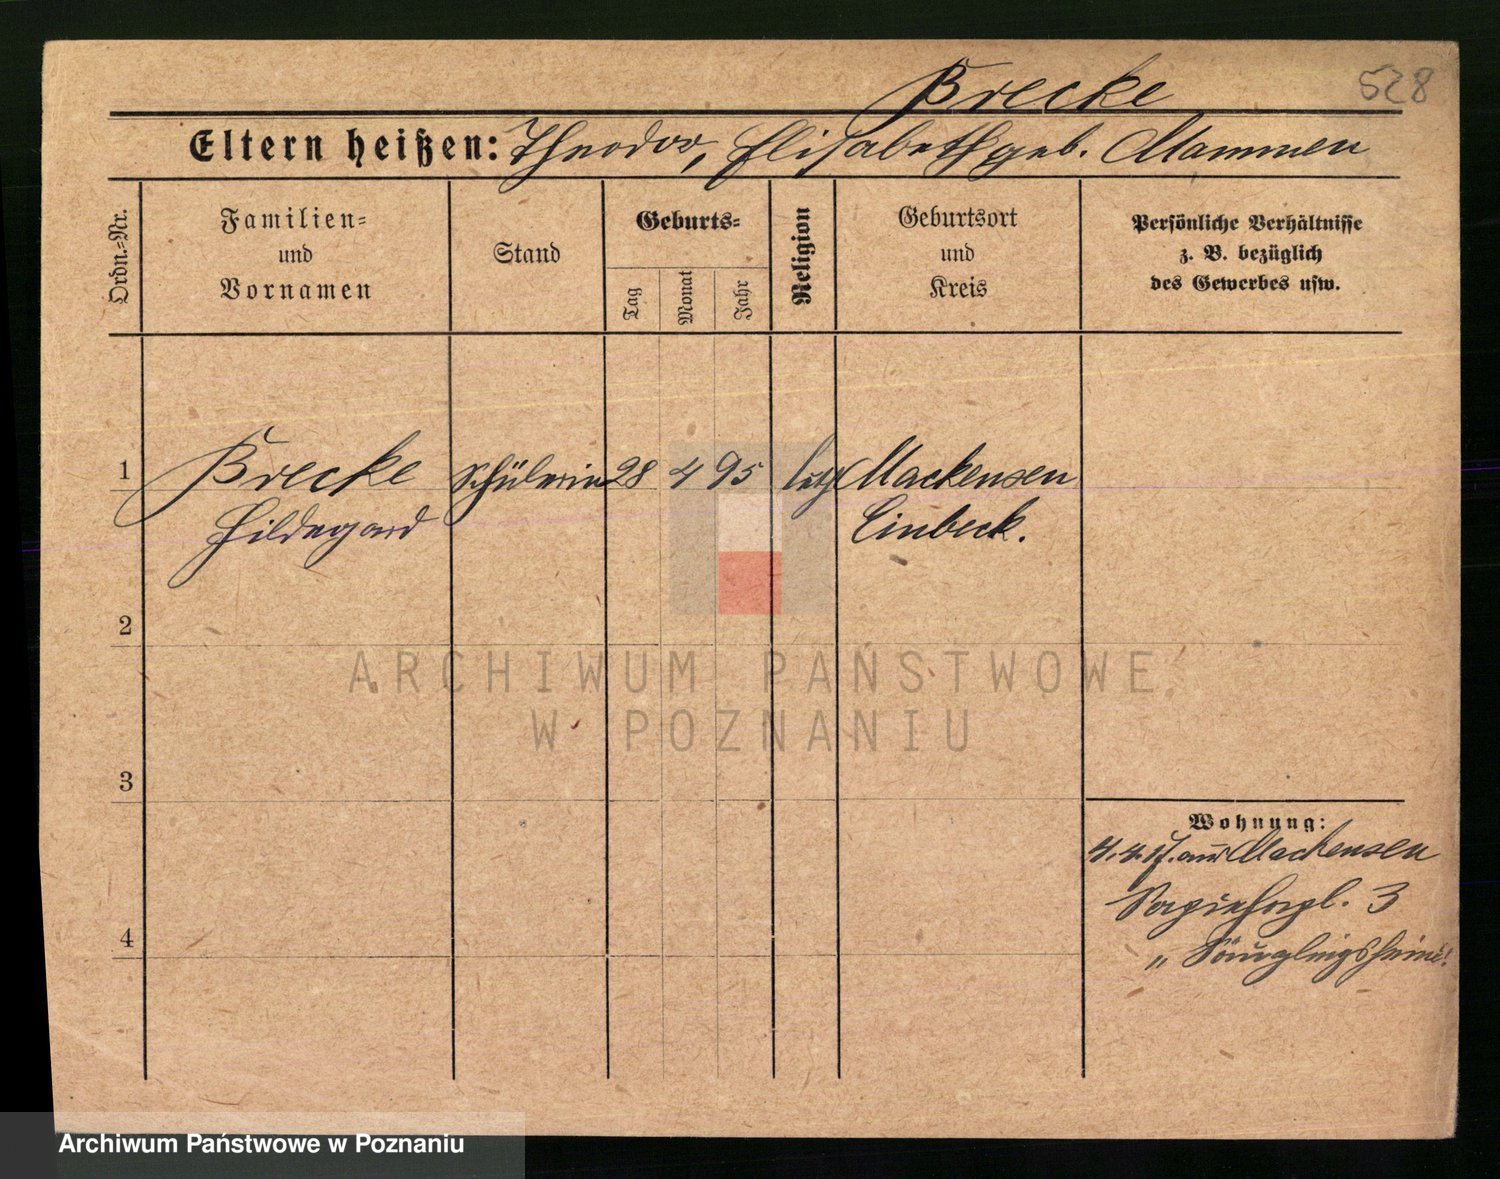 Brecke 528
Eltern heißen: Theodor, Elisabeth geb. Mammen
Ordn.=Nr.
Familien=
und
Vornamen
Stand
Geburts=
Tag
Monat
Jahr
Religion
Geburtsort
und
Kreis
Persönliche Verhältnisse
z. B. bezüglich
des Gewerbes usw.
1 Brecke Schülerin 28 4 95 luth Mackensen
Hildegard Einbeck.
2
3
4
Wohnung:
4.4.17. aus Mackensen
3
" Säuglingsheim!
ARCHIWUM PAŃSTWOWE
W POZNANIU
Archiwum Państwowe w Poznaniu